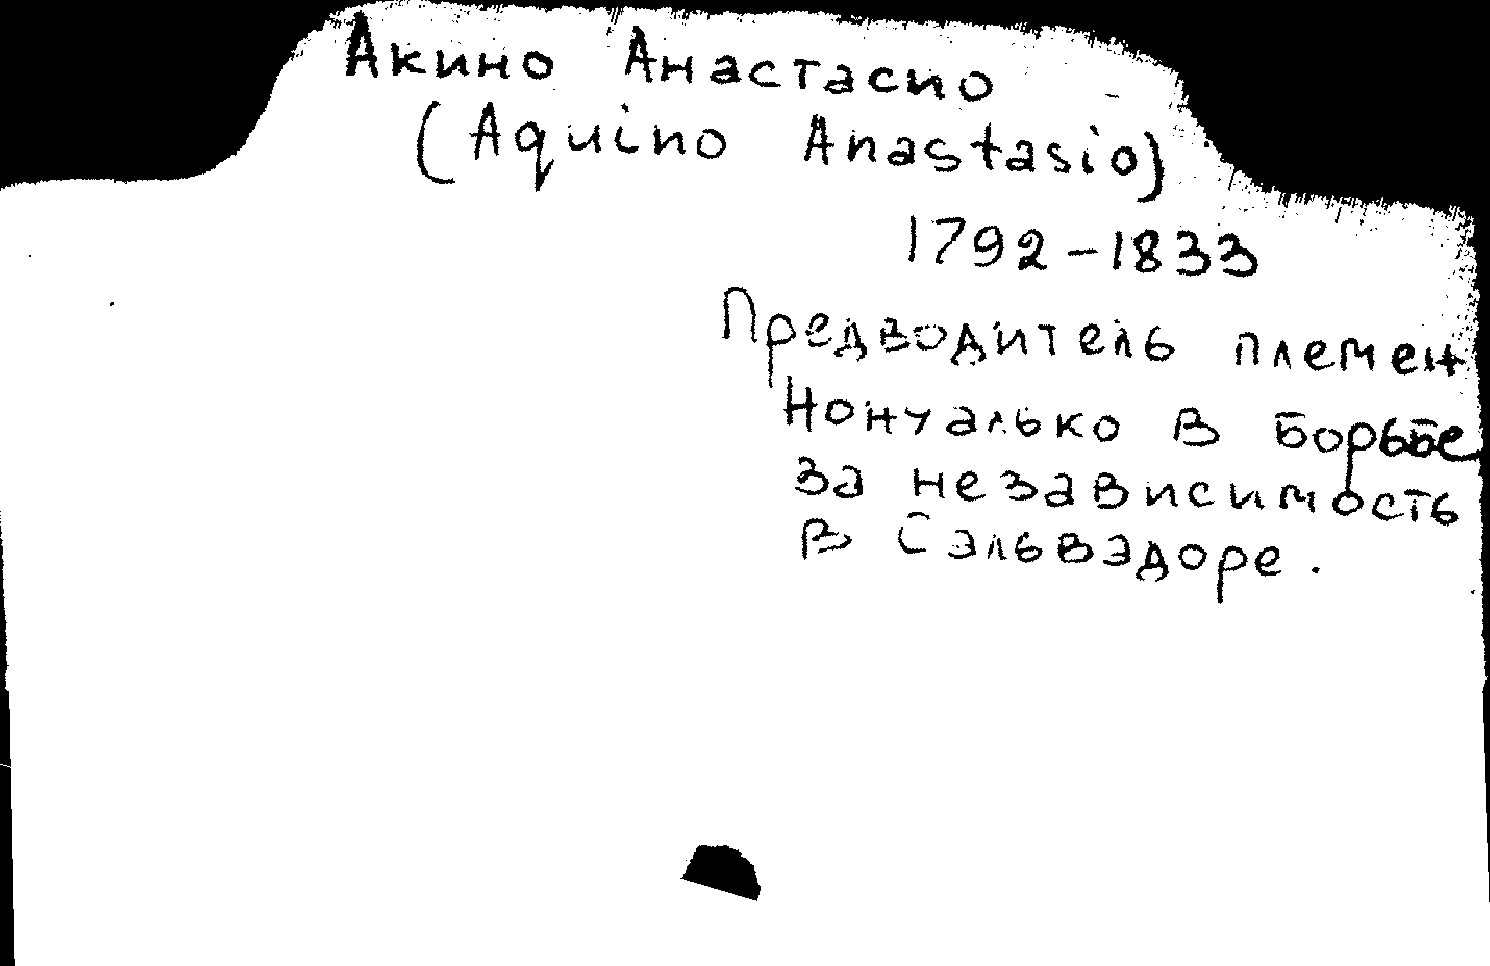 Акино Анастасио
(Aquino Anastasio)
1792-1833
Предводитель племен
Нонуалько в борьбе
за независимость
в Сальвадоре.